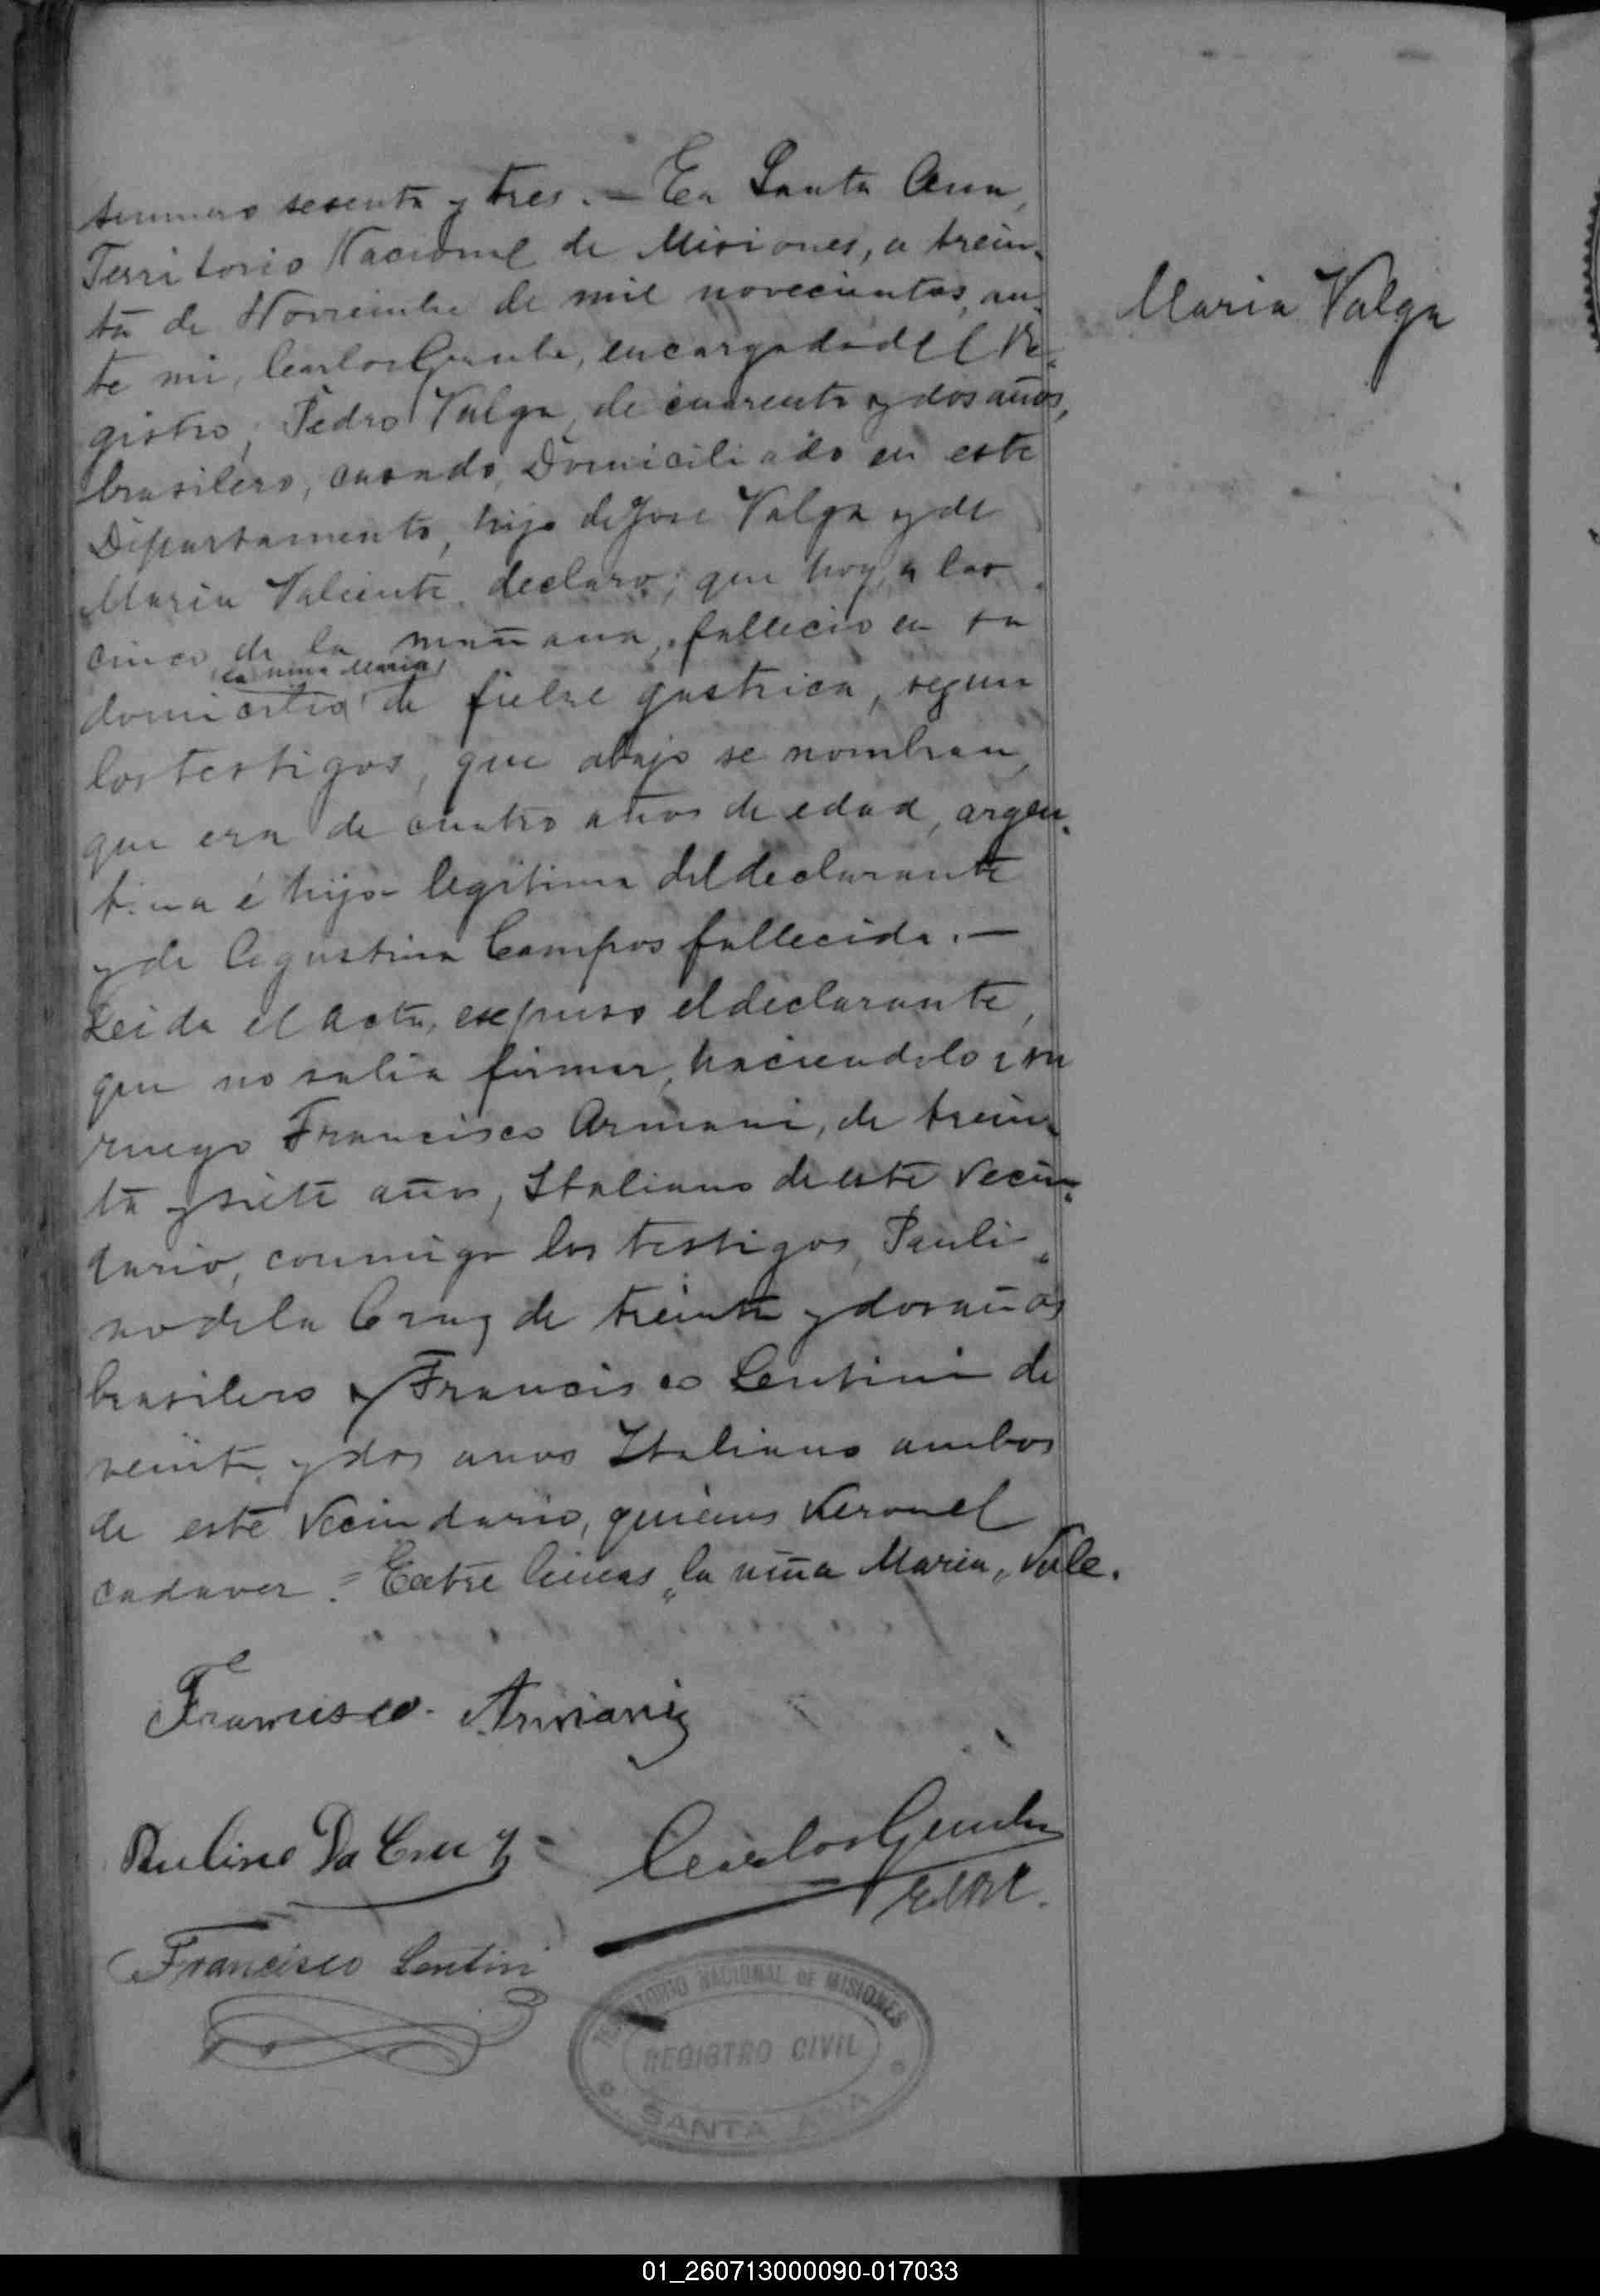 Numero sesenta y tres. — En Santa Ana,
Territorio Nacional de Misiones, a trein-
ta de Noviembre de mil novecientos, an-
te mi, Carlos, encargado del Re-
gistro, Pedro Valga, de cuarenta y dos años,
brasilero, casado, Domiciliado en este
Departamento, hijo de Jose Valga y de
Maria Valiente declaro; que hoy, a las
cinco de la mañana, fallecio en su
la niña Maria
domicilio de fiebre gastrica, segun
los testigos, que abajo se nombran,
que era de cuatro años de edad, argen-
tina é hija legitima del declarante
y de Agustina Campos fallecida. —
Leida el acta, expuso el declarante,
que no sabia firmar, haciendolo a su
ruego Francisco Armani, de trein-
ta y siete años, Italiano de este vecin-
dario, conmigo los testigos, Pauli-
no de la Cruz de treinta y dos años
brasilero y Francisco Lentini de
veinte y dos anos Italiano ambos
de este Vecindario, quienes vieron el
cadaver. = Entre lineas "la niña Maria" Vale.
Maria Valga
Francisco. Armani
Paulino Da Cruz =
Carlos
Francisco Lentini
TERRITORIO NACIONAL DE MISIONES
REGISTRO CIVIL
SANTA ANA
01_260713000090-017033